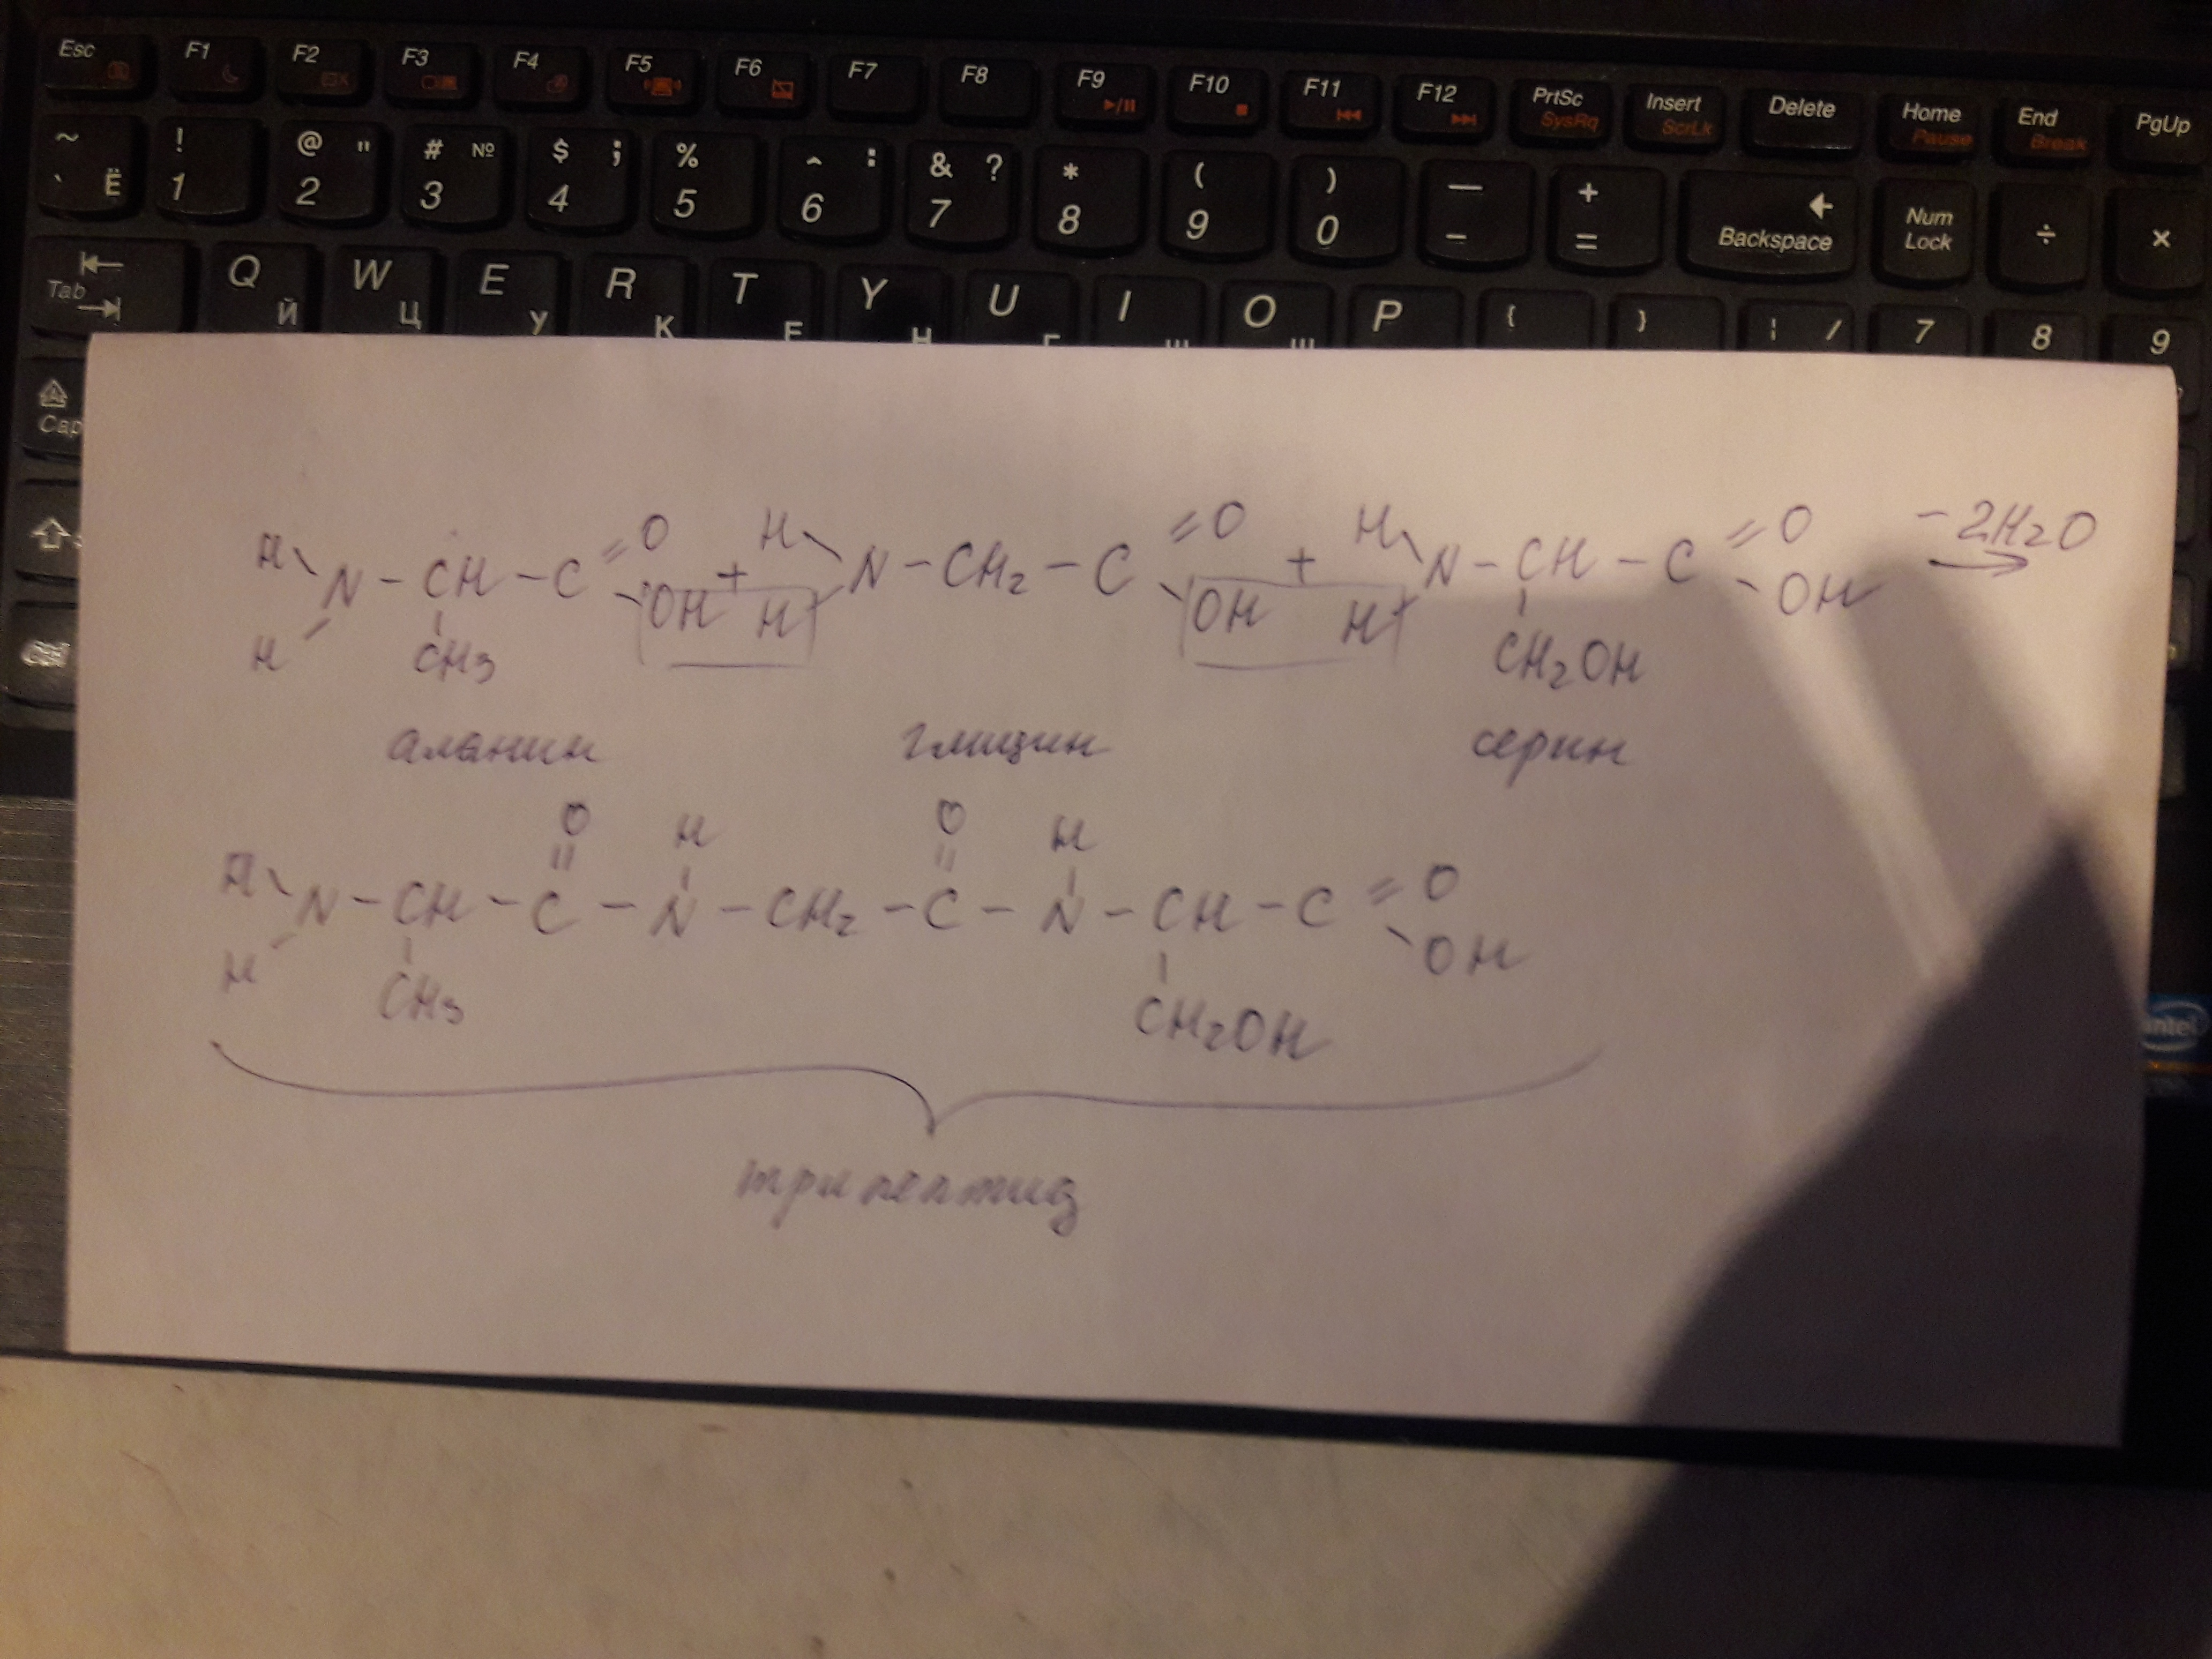 Esc F1 F2 F3 F4 F5 F6 F7 F8 F9 F10 F11 F12 PrtSc SysRq Insert ScrLk Delete Home Pause End Break PgUp
~ ` Ё ! 1 @ " 2 # № 3 $ ; 4 % 5 ^ : 6 & ? 7 * 8 ( 9 ) 0 — - + = Backspace Num Lock ÷ ×
Tab Q Й W Ц E У R К T Е Y Н U Г I Ш O Щ P { } | / 7 8 9
H O H O H O -2H₂O
N - CH - C + N - CH₂ - C + N - CH - C →
H CH₃ OH H OH H CH₂OH OH
аланин глицин серин
H O H O H O
N - CH - C - N - CH₂ - C - N - CH - C
H CH₃ CH₂OH OH
трипептид
intel